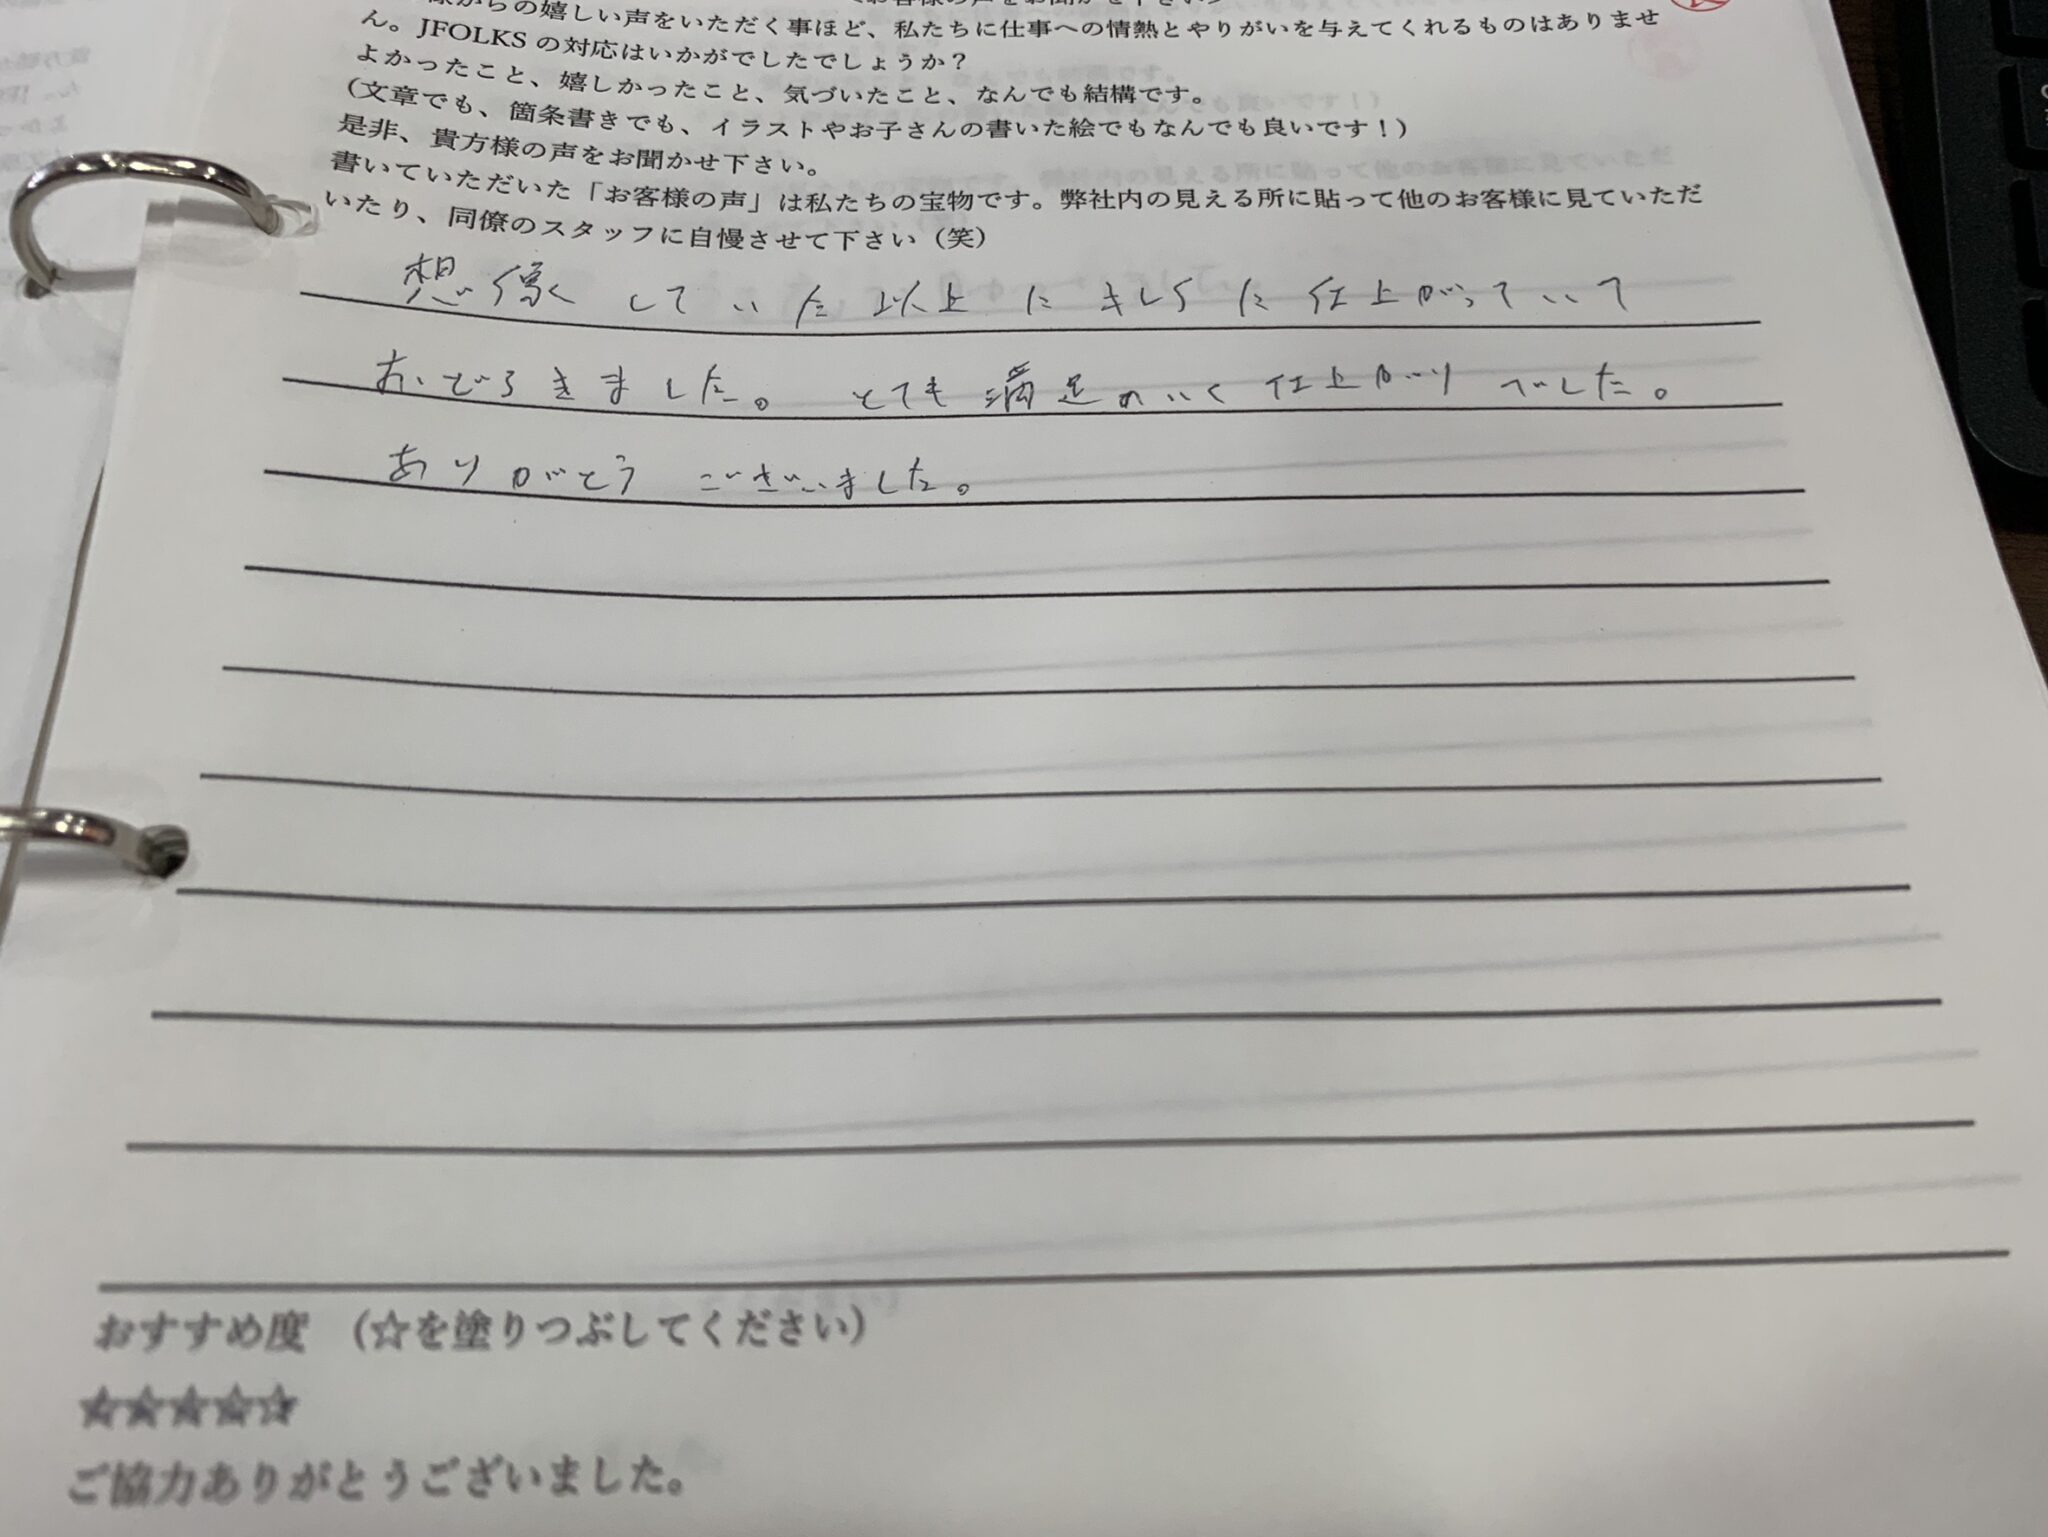 様からの嬉しい声をいただく事ほど、私たちに仕事への情熱とやりがいを与えてくれるものはありませ
ん。JFOLKSの対応はいかがでしたでしょうか？
よかったこと、嬉しかったこと、気づいたこと、なんでも結構です。
（文章でも、箇条書きでも、イラストやお子さんの書いた絵でもなんでも良いです！）
是非、貴方様の声をお聞かせ下さい。
書いていただいた「お客様の声」は私たちの宝物です。弊社内の見える所に貼って他のお客様に見ていただ
いたり、同僚のスタッフに自慢させて下さい（笑）
想像していた以上にキレイに仕上がっていて
おどろきました。とても満足のいく仕上がりでした。
ありがとうございました。
おすすめ度　（☆を塗りつぶしてください）
☆☆☆☆☆
ご協力ありがとうございました。